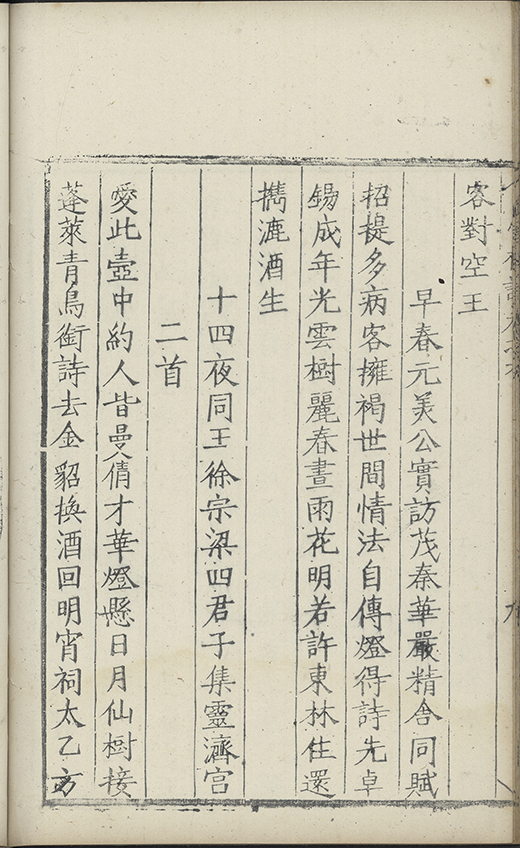 客對空王
早春元美公實訪茂秦華嚴精舍同賦
招提多病客擁褐世間情法自傳燈得詩先卓
錫成年光雲樹麗春晝雨花明若許東林住還
攜漉酒生
十四夜同王徐宗梁四君子集靈濟宮
二首
愛此壺中約人皆曼倩才華燈懸日月仙樹接
蓬萊青鳥銜詩去金貂換酒回明宵祠太乙方